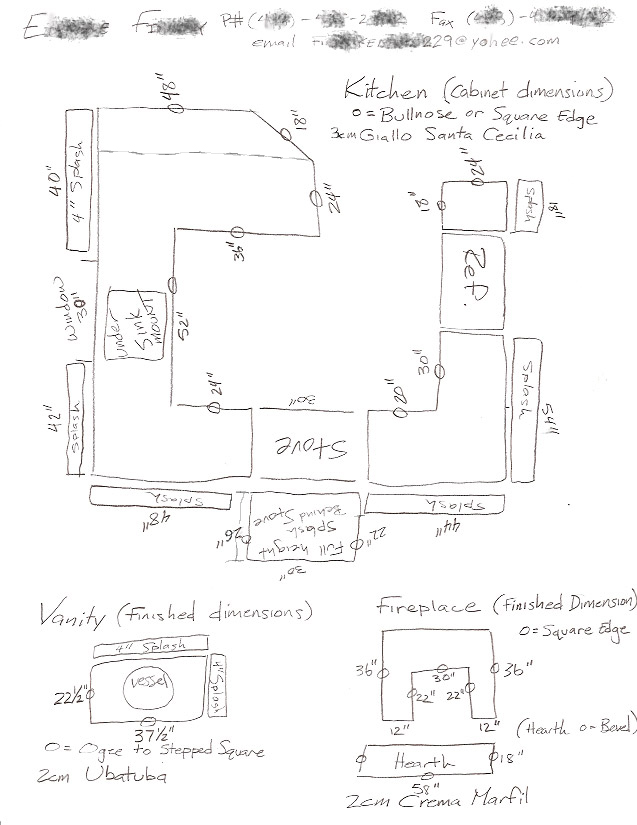 P#
Fax
email
229@yohee.com
Kitchen (Cabinet dimensions)
o = Bullnose or Square Edge
3cm Giallo Santa Cecilia
48"
18"
24"
36"
40"
4" Splash
Window
30"
Under
Sink
Mount
52"
42"
Splash
24"
30"
Stove
20"
30"
24"
18"
Splash
18"
Ref.
Splash
54"
Splash
48"
Full height
Splash
Behind Stove
26"
22"
30"
Splash
44"
Vanity (Finished dimensions)
4" Splash
4" Splash
Vessel
22½"
37½"
o = Ogee to Stepped Square
2cm Ubatuba
Fireplace (Finished Dimension)
o = Square Edge
36"
30"
36"
22"
22"
12"
12"
(Hearth o - Bevel)
Hearth
18"
58"
2cm Crema Marfil